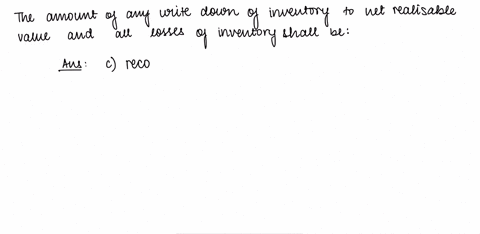 The amount of any write down of inventory to net realisable
value and all losses of inventory shall be:
Ans: c) reco